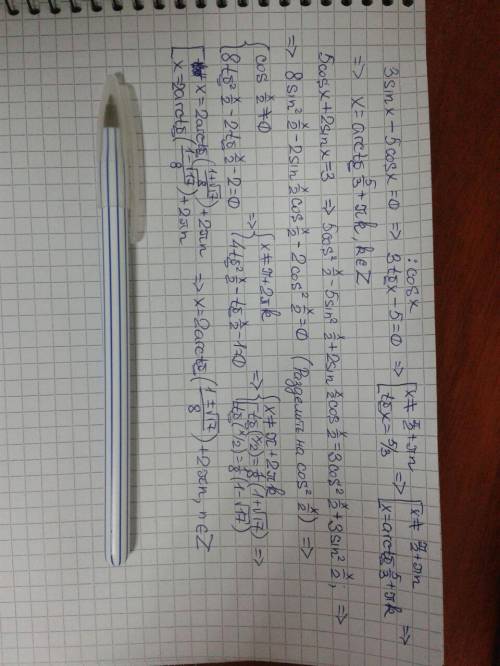 3sinx - 5cosx = 0 => 3tgx - 5 = 0 => [x ≠ π/2 + πn => [x ≠ π/2 + πn =>
: cosx [tgx = 5/3 [x = arctg 5/3 + πk
=> x = arctg 5/3 + πk, k ∈ Z
5cosx + 2sinx = 3 => 5cos² x/2 - 5sin² x/2 + 2sin x/2 cos x/2 = 3cos² x/2 + 3sin² x/2; =>
=> 8sin² x/2 - 2sin x/2 cos x/2 - 2cos² x/2 = 0 (Разделить на cos² x/2) =>
{cos x/2 ≠ 0 => {x ≠ π + 2πk => {x ≠ π + 2πk
{8tg² x/2 - 2tg x/2 - 2 = 0 {4tg² x/2 - tg x/2 - 1 = 0 [tg(x/2) = 1/8(1 + √17) =>
[tg(x/2) = 1/8(1 - √17)
[x = 2arctg(1+√17/8) + 2πn => x = 2arctg(1±√17/8) + 2πn, n ∈ Z
[x = 2arctg(1-√17/8) + 2πn